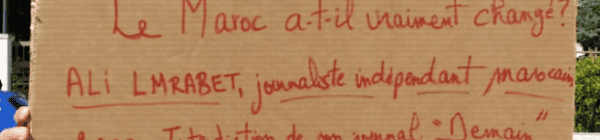 Le Maroc a-t-il vraiment changé?
ALi LMRABET, journaliste indépendant marocain
de son journal "Demain"